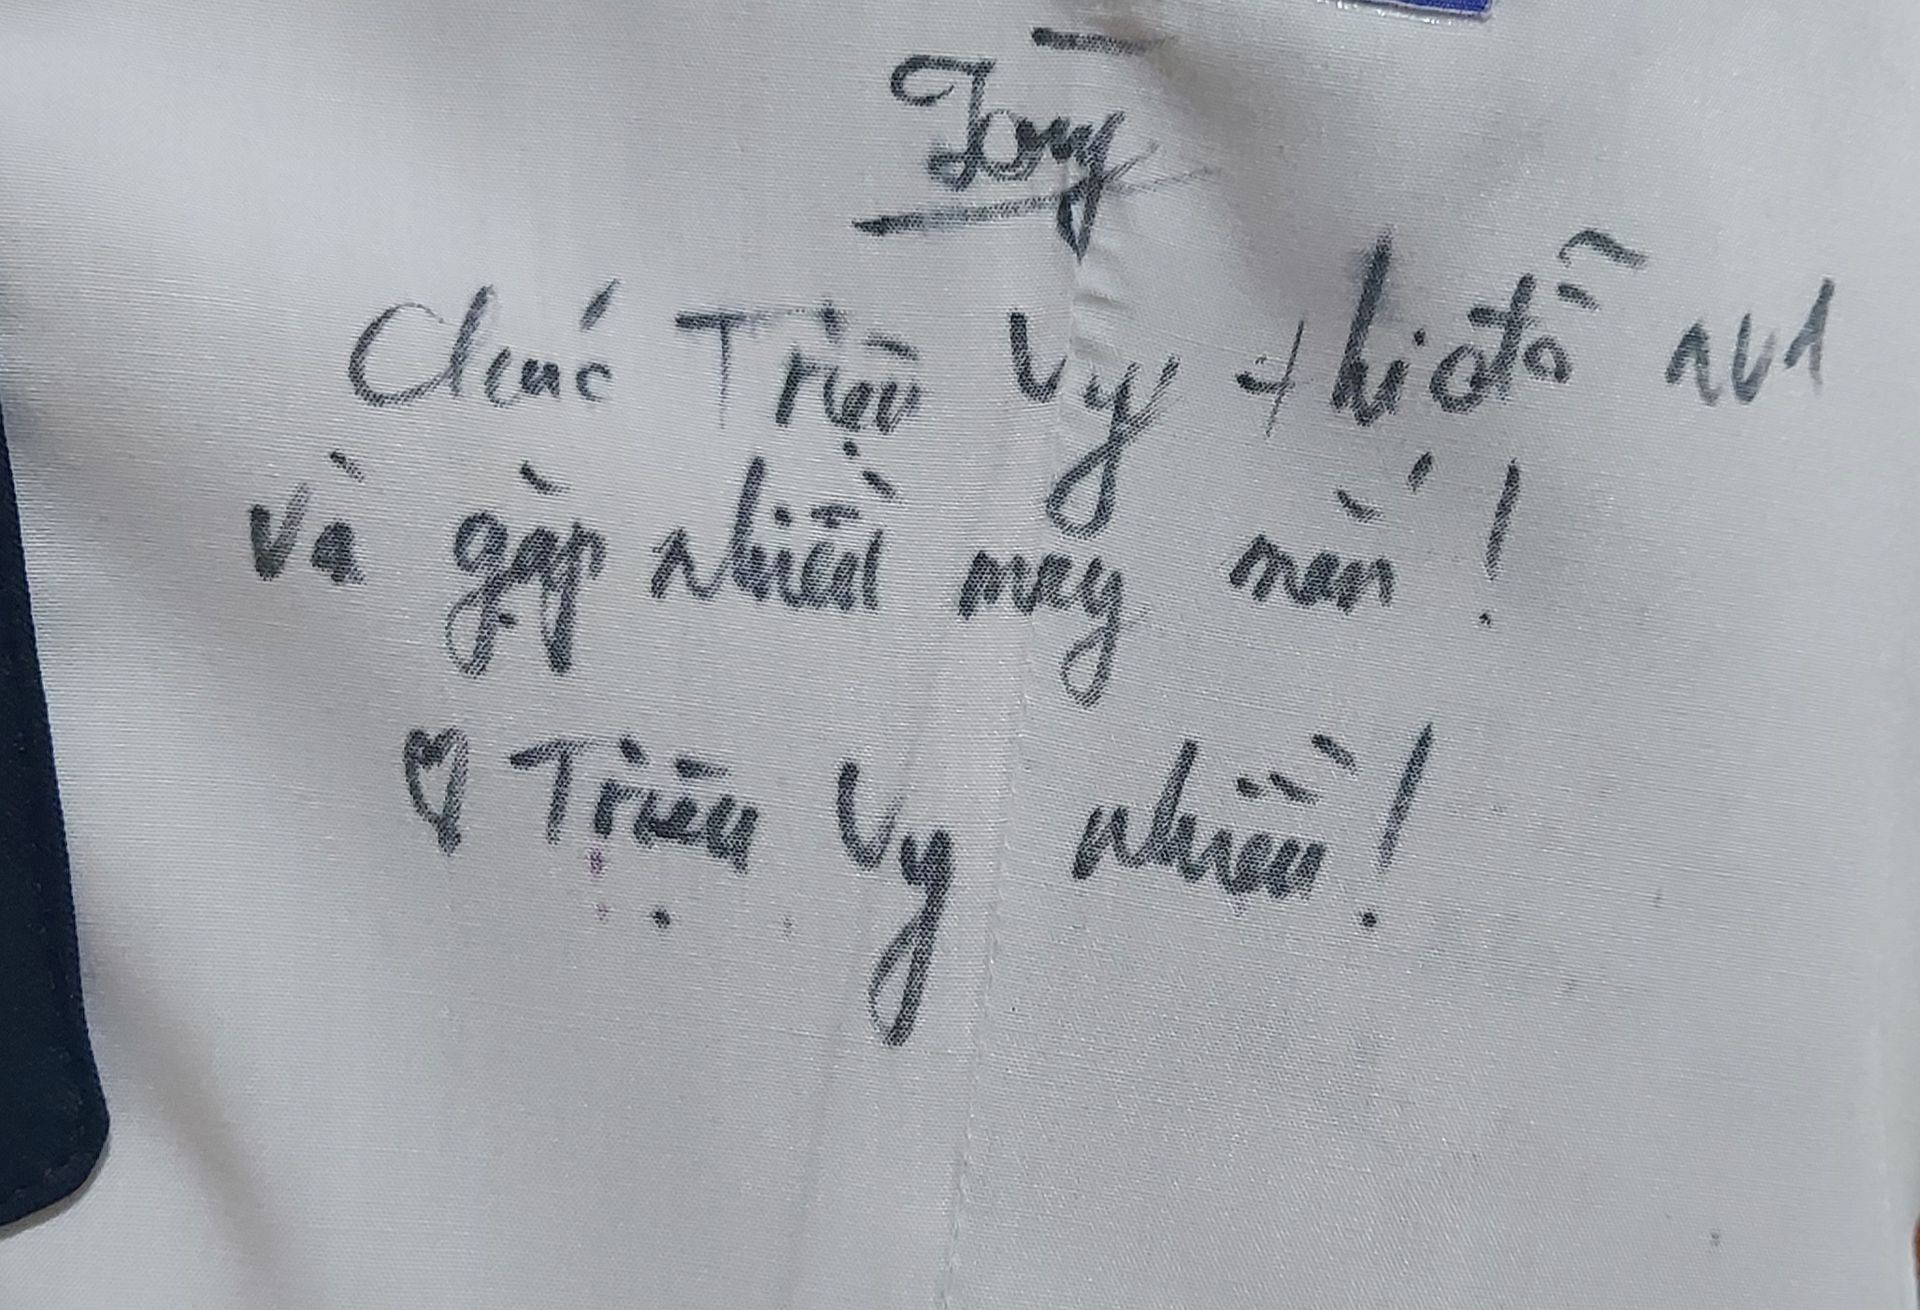 Tony
Chúc Triệu Vy thi đỗ NV1
và gặp nhiều may mắn!
♡ Triệu Vy nhiều!